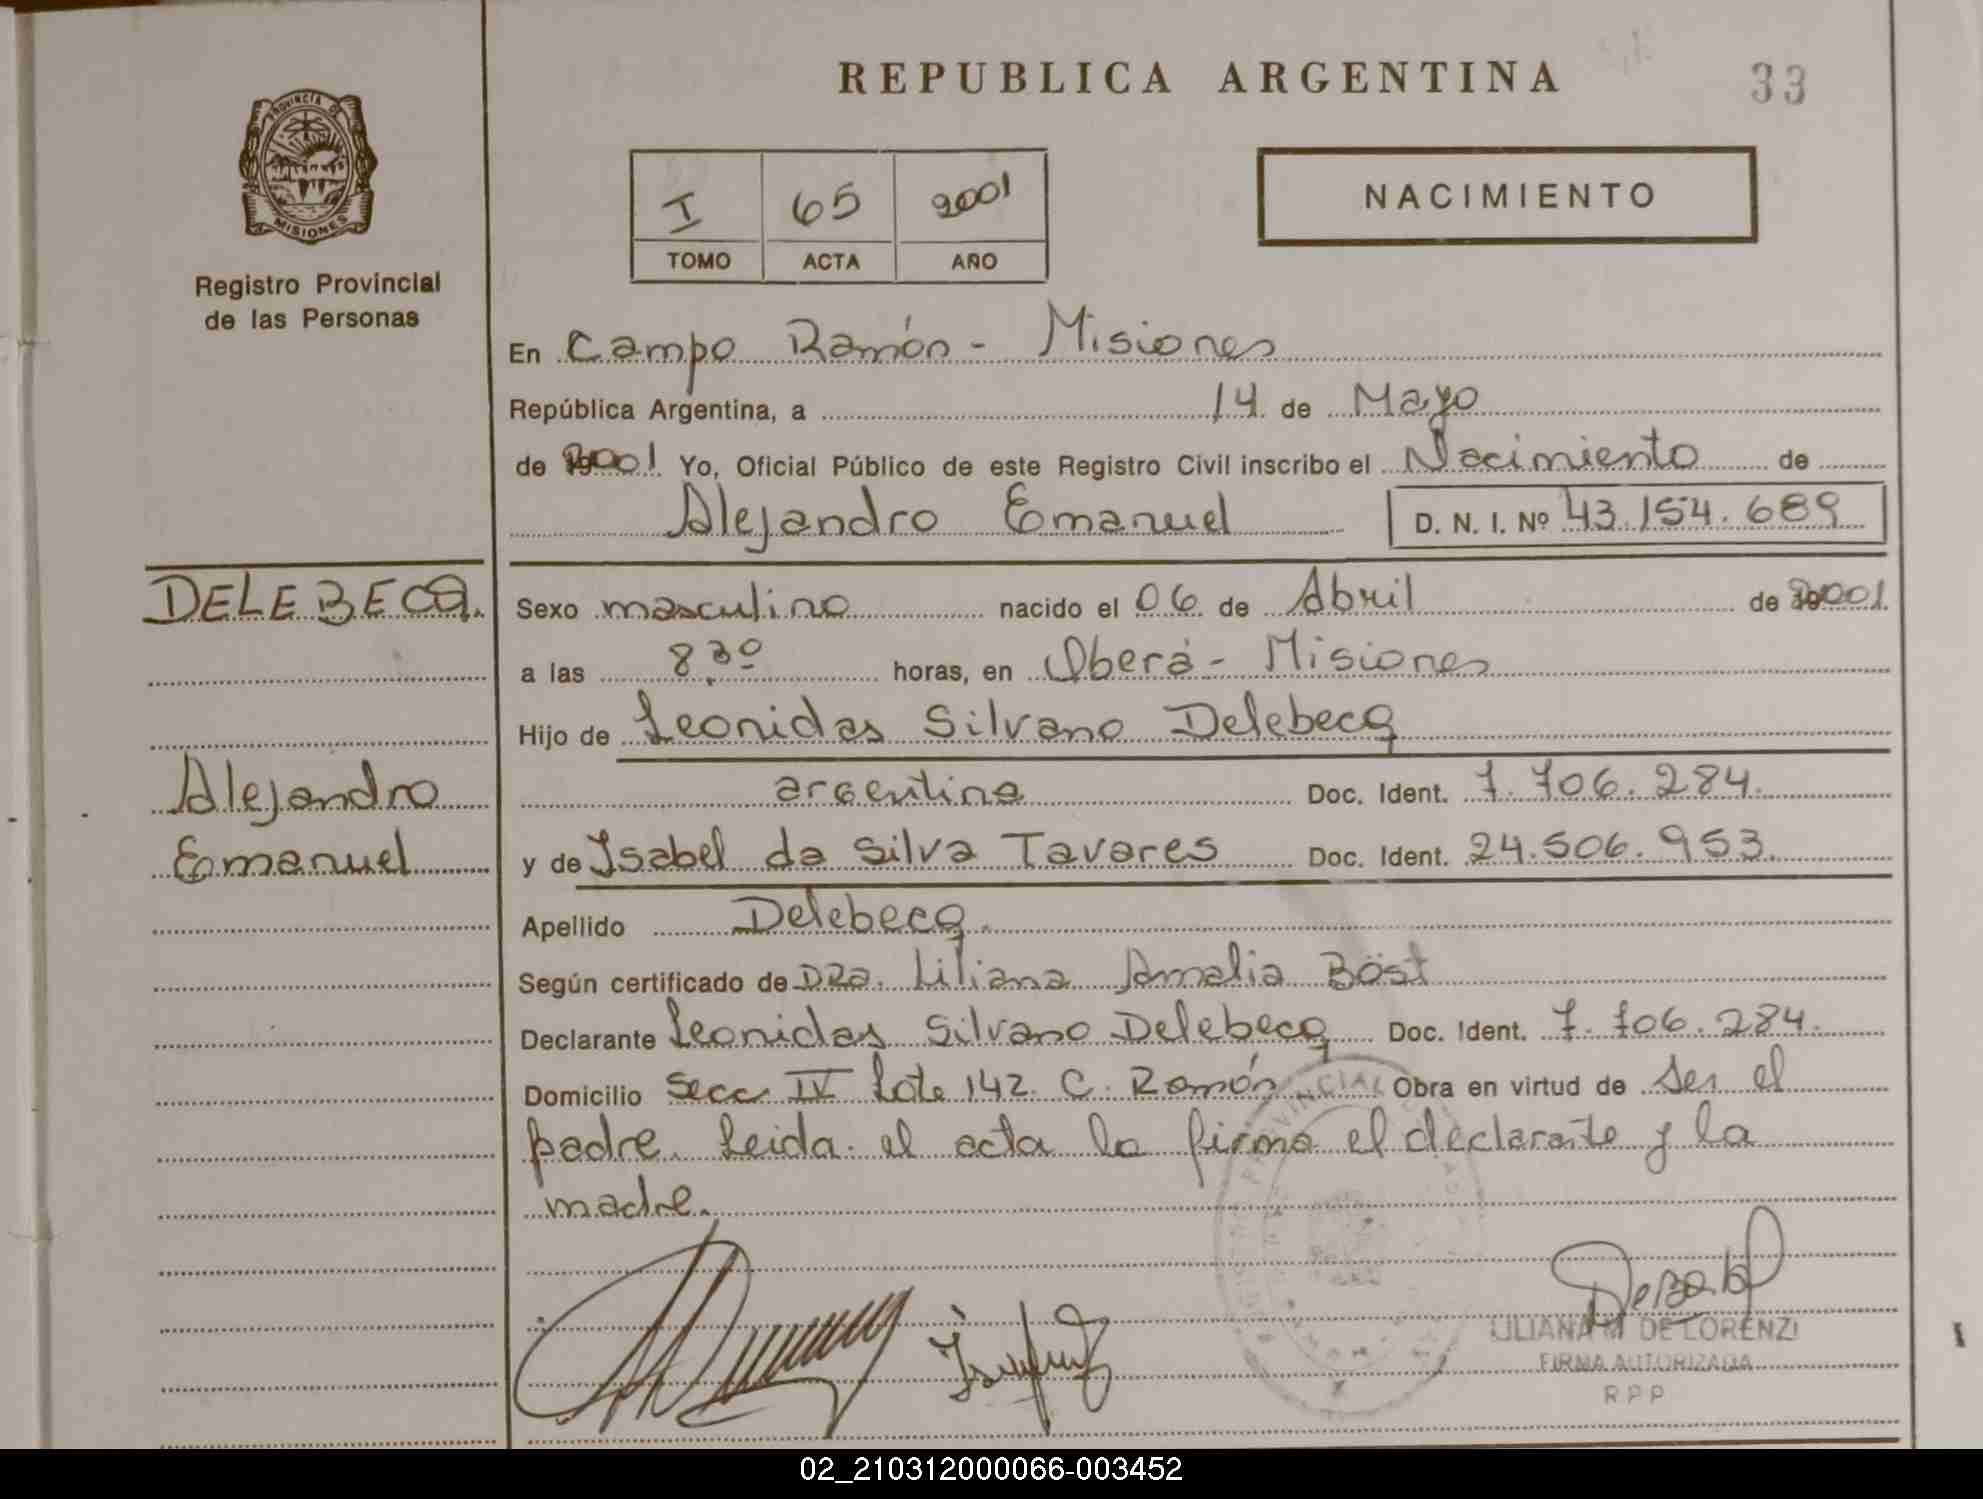 REPUBLICA ARGENTINA
33
PROVINCIA DE
MISIONES
Registro Provincial
de las Personas
I 65 2001
TOMO ACTA AÑO
NACIMIENTO
En Campo Ramón - Misiones
República Argentina, a 14 de Mayo
de 2001 Yo, Oficial Público de este Registro Civil inscribo el Nacimiento de
Alejandro Emanuel D. N. I. Nº 43.154.689
DELEBECQ.
Sexo masculino nacido el 06 de Abril de 2001.
a las 8.30 horas, en Oberá - Misiones
Hijo de Leonidas Silvano Delebecq
Alejandro
argentina Doc. Ident. 7.706.284.
Emanuel
y de Isabel da Silva Tavares Doc. Ident. 24.506.953.
Apellido Delebecq.
Según certificado de DRa. Liliana Amalia Böst
Declarante Leonidas Silvano Delebecq Doc. Ident. 7.706.284.
Domicilio Secc IV Lote 142. C. Ramón Obra en virtud de ser el
padre. Leida el acta la firma el declarante y la
madre.
LILIANA M DE LORENZI
FIRMA AUTORIZADA
R P P
02_210312000066-003452